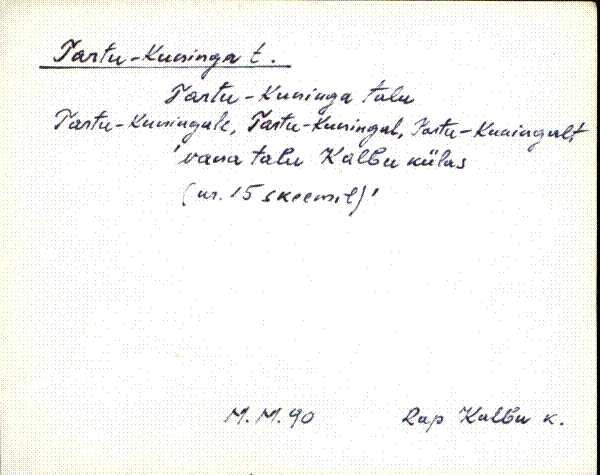 Tartu-Kuninga t.
Tartu-Kuninga talu
Tartu-Kuningale, Tartu-Kuningal, Tartu-Kuningalt
'vana talu Kalbu külas
(nr. 15 skeemil)'
M.M.90
Rap Kalbu k.